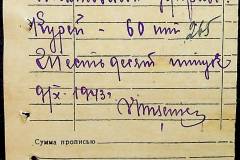 Курей - 60 шт 265
Шестьдесят штук
9/IX - 1943г.
Сумма прописью